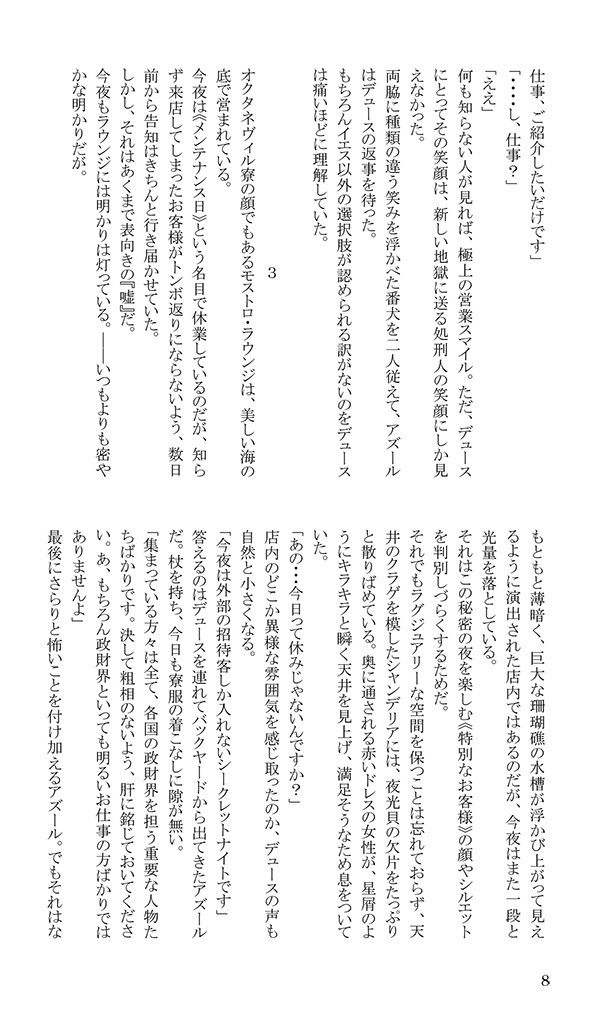 仕事、ご紹介したいだけです」
「・・・し、仕事？」
「ええ」
何も知らない人が見れば、極上の営業スマイル。ただ、デュース
にとってその笑顔は、新しい地獄に送る処刑人の笑顔にしか見
えなかった。
両脇に種類の違う笑みを浮かべた番犬を二人従えて、アズール
はデュースの返事を待った。
もちろんイエス以外の選択肢が認められる訳がないのをデュース
は痛いほどに理解していた。
3
オクタネヴィル寮の顔でもあるモストロ・ラウンジは、美しい海の
底で営まれている。
今夜は《メンテナンス日》という名目で休業しているのだが、知ら
ず来店してしまったお客様がトンボ返りにならないよう、数日
前から告知はきちんと行き届かせていた。
しかし、それはあくまで表向きの『嘘』だ。
今夜もラウンジには明かりは灯っている。――いつもよりも密や
かな明かりだが。
もともと薄暗く、巨大な珊瑚礁の水槽が浮かび上がって見え
るように演出された店内ではあるのだが、今夜はまた一段と
光量を落としている。
それはこの秘密の夜を楽しむ《特別なお客様》の顔やシルエット
を判別しづらくするためだ。
それでもラグジュアリーな空間を保つことは忘れておらず、天
井のクラゲを模したシャンデリアには、夜光貝の欠片をたっぷり
と散りばめている。奥に通される赤いドレスの女性が、星屑のよ
うにキラキラと瞬く天井を見上げ、満足そうなため息をついて
いた。
「あの・・・今日って休みじゃないんですか？」
店内のどこか異様な雰囲気を感じ取ったのか、デュースの声も
自然と小さくなる。
「今夜は外部の招待客しか入れないシークレットナイトです」
答えるのはデュースを連れてバックヤードから出てきたアズール
だ。杖を持ち、今日も寮服の着こなしに隙が無い。
「集まっている方々は全て、各国の政財界を担う重要な人物た
ちばかりです。決して粗相のないよう、肝に銘じておいてくださ
い。あ、もちろん政財界といっても明るいお仕事の方ばかりでは
ありませんよ」
最後にさらりと怖いことを付け加えるアズール。でもそれはな
8